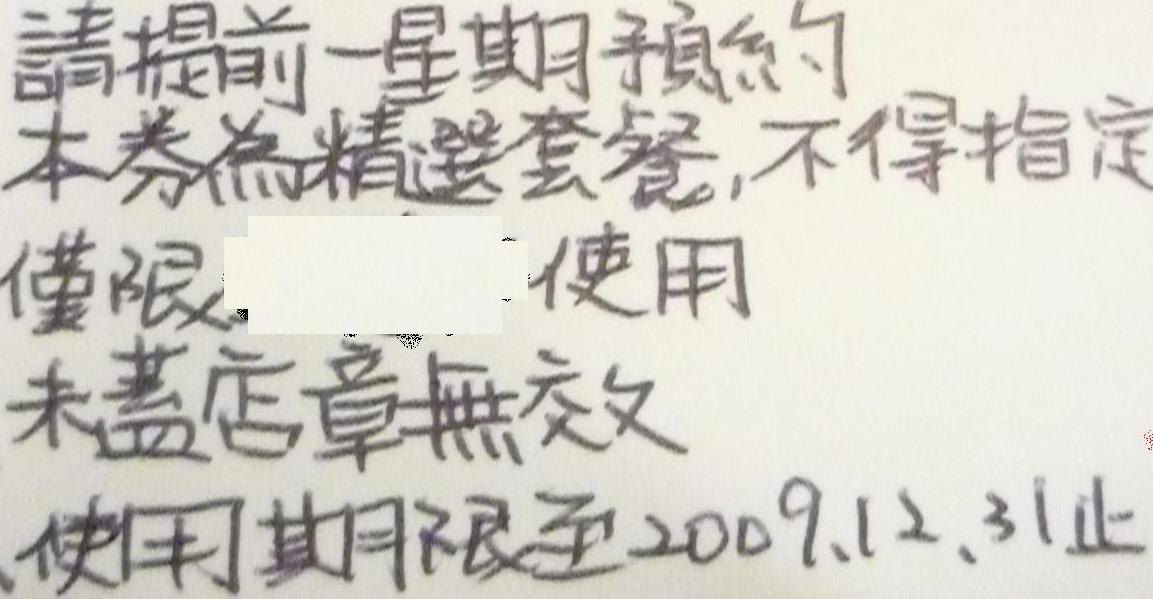 請提前一星期預約
本券為精選套餐,不得指定
僅限 使用
未蓋店章無效
使用期限至2009.12.31止